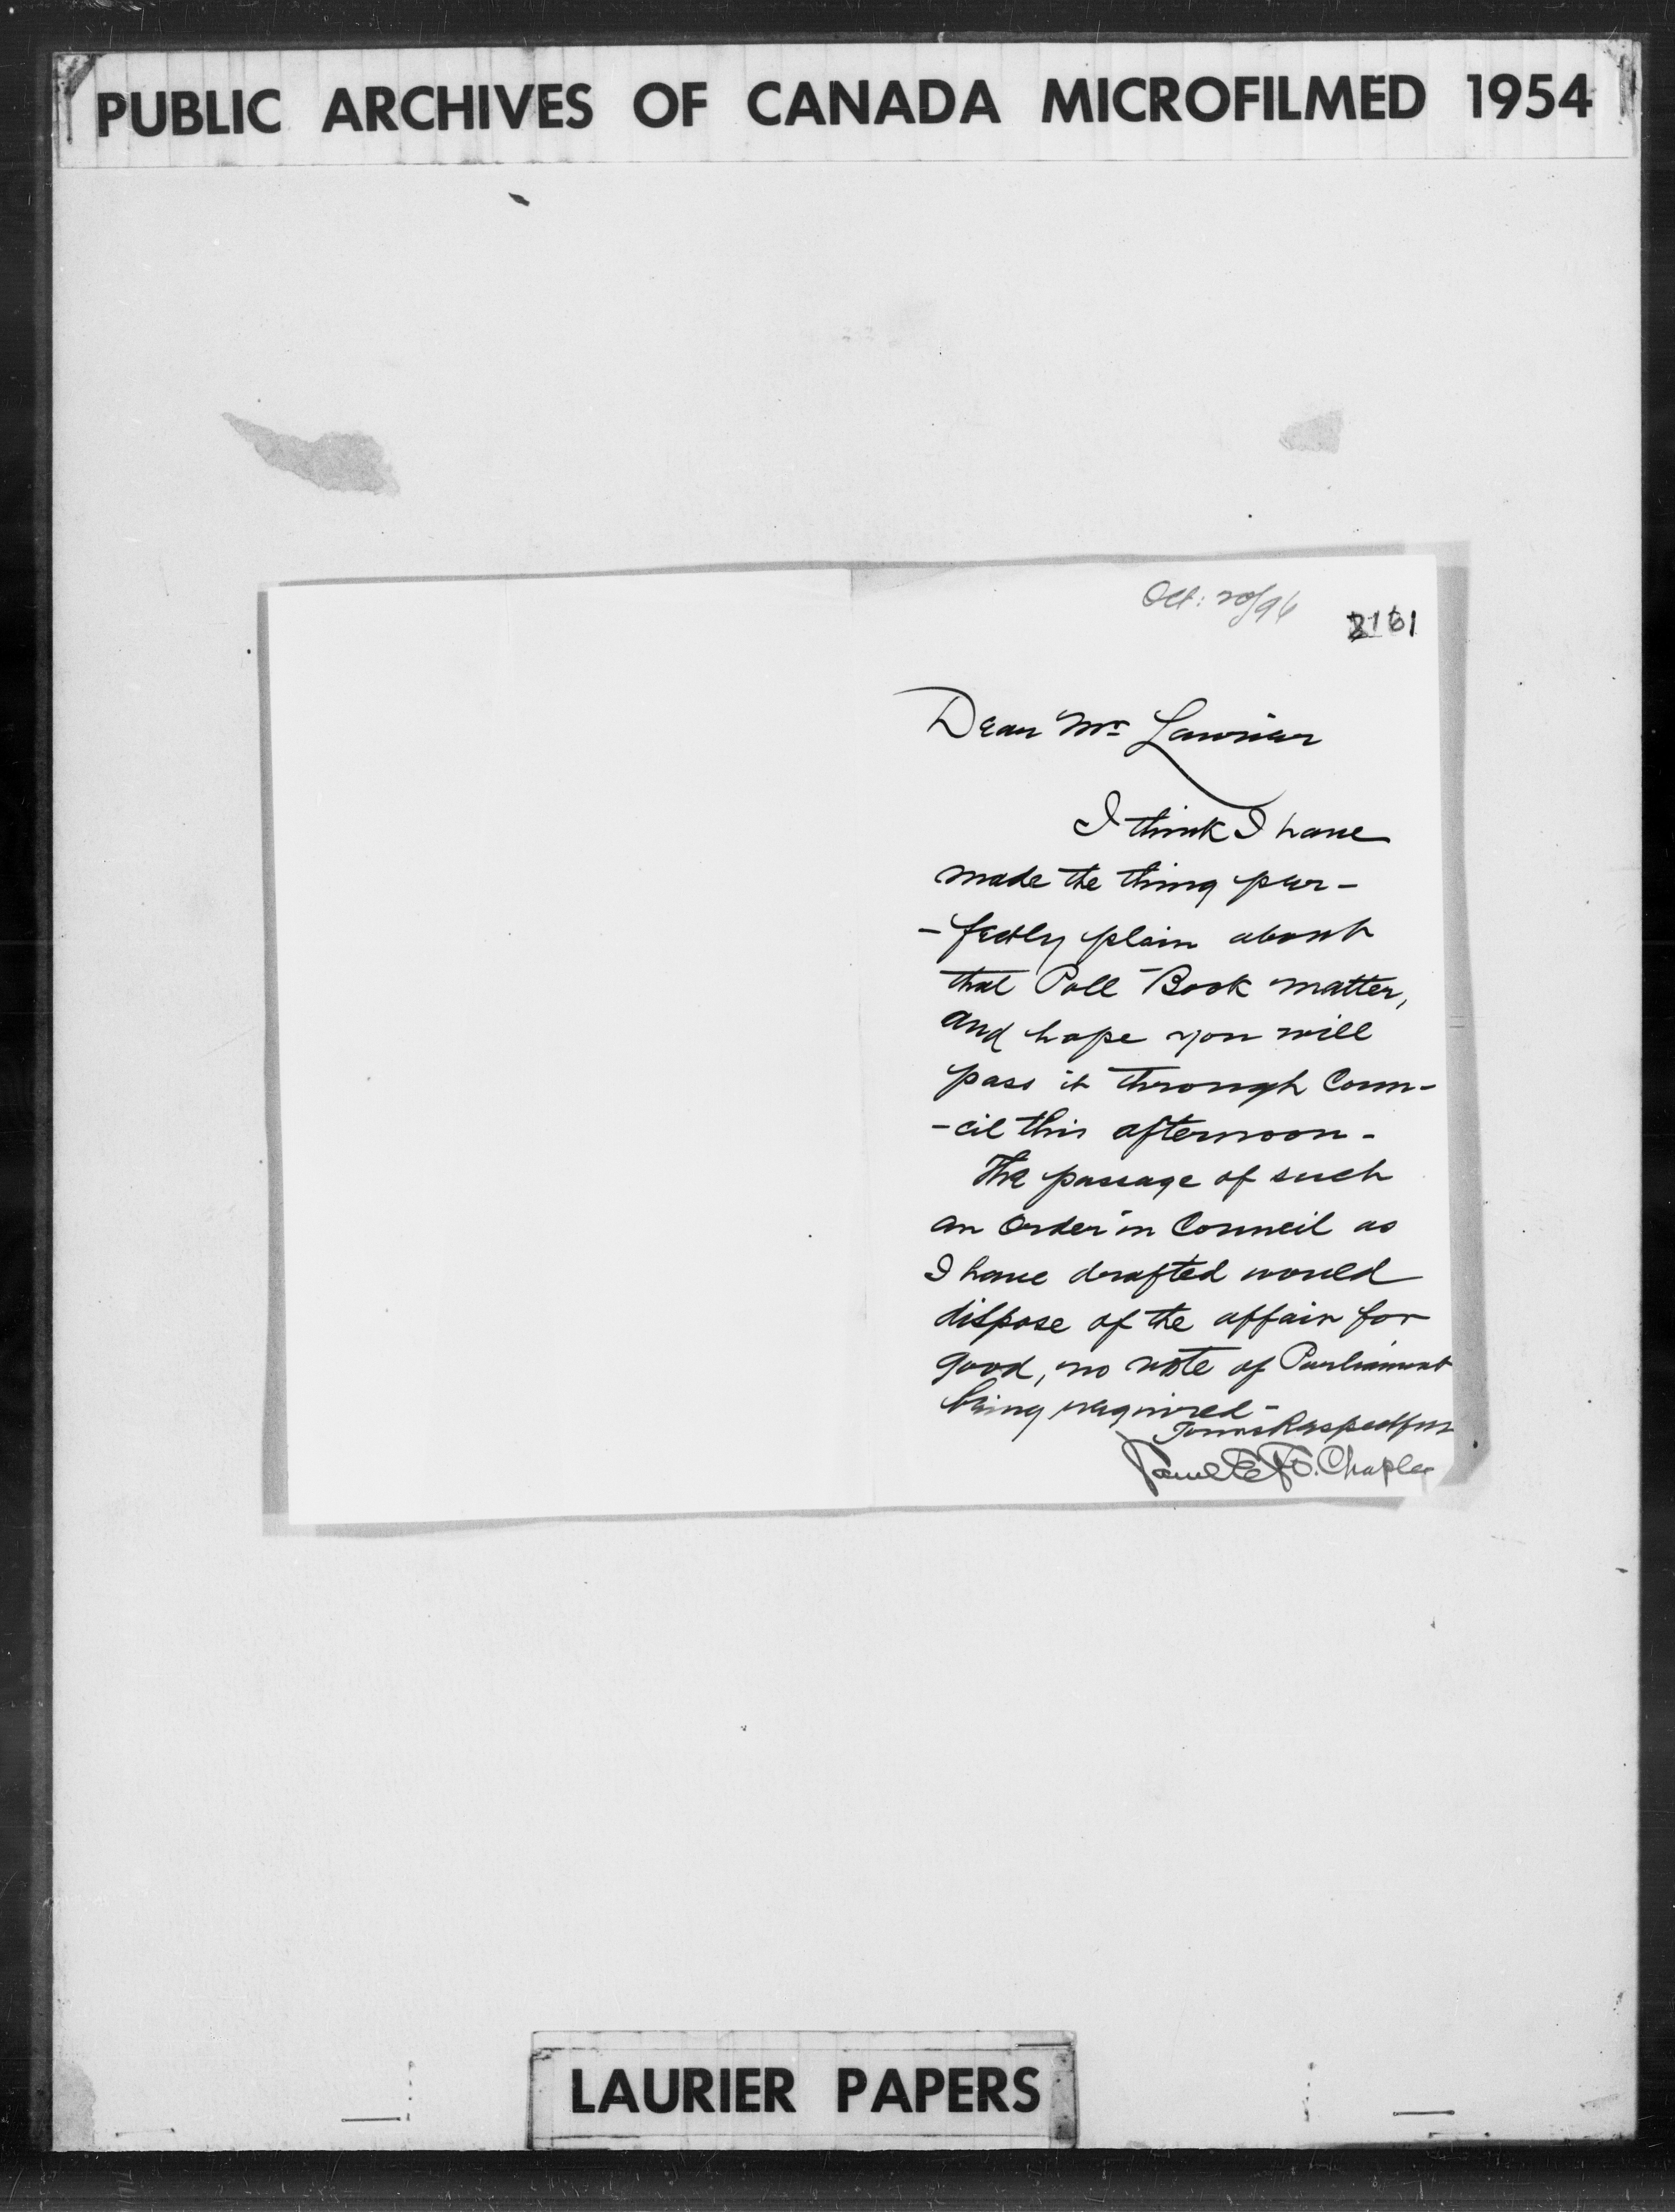 PUBLIC ARCHIVES OF CANADA MICROFILMED 1954
Oct: 20/96
2161
Dear Mr Laurier
I think I have
made the thing per-
-fectly plain about
that Poll Book matter,
and hope you will
pass it through Coun-
-cil this afternoon-
The passage of such
an Order in Council as
I have drafted would
dispose of the affair for
good, no vote of Parliament
being required-
Yours Respectfully
Samuel E. St. O. Chapleau
LAURIER PAPERS